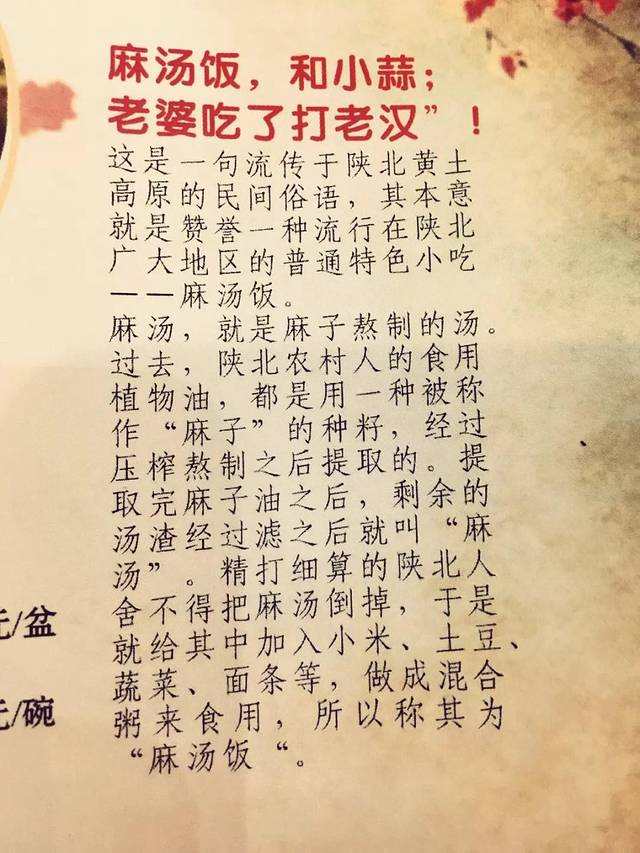 麻汤饭，和小蒜；
老婆吃了打老汉”！
这是一句流传于陕北黄土
高原的民间俗语，其本意
就是赞誉一种流行在陕北
广大地区的普通特色小吃
——麻汤饭。
麻汤，就是麻子熬制的汤。
过去，陕北农村人的食用
植物油，都是用一种被称
作“麻子”的种籽，经过
压榨熬制之后提取的。提
取完麻子油之后，剩余的
汤渣经过滤之后就叫“麻
汤”。精打细算的陕北人
舍不得把麻汤倒掉，于是
就给其中加入小米、土豆、
蔬菜、面条等，做成混合
粥来食用，所以称其为
“麻汤饭“。
元/盆
元/碗